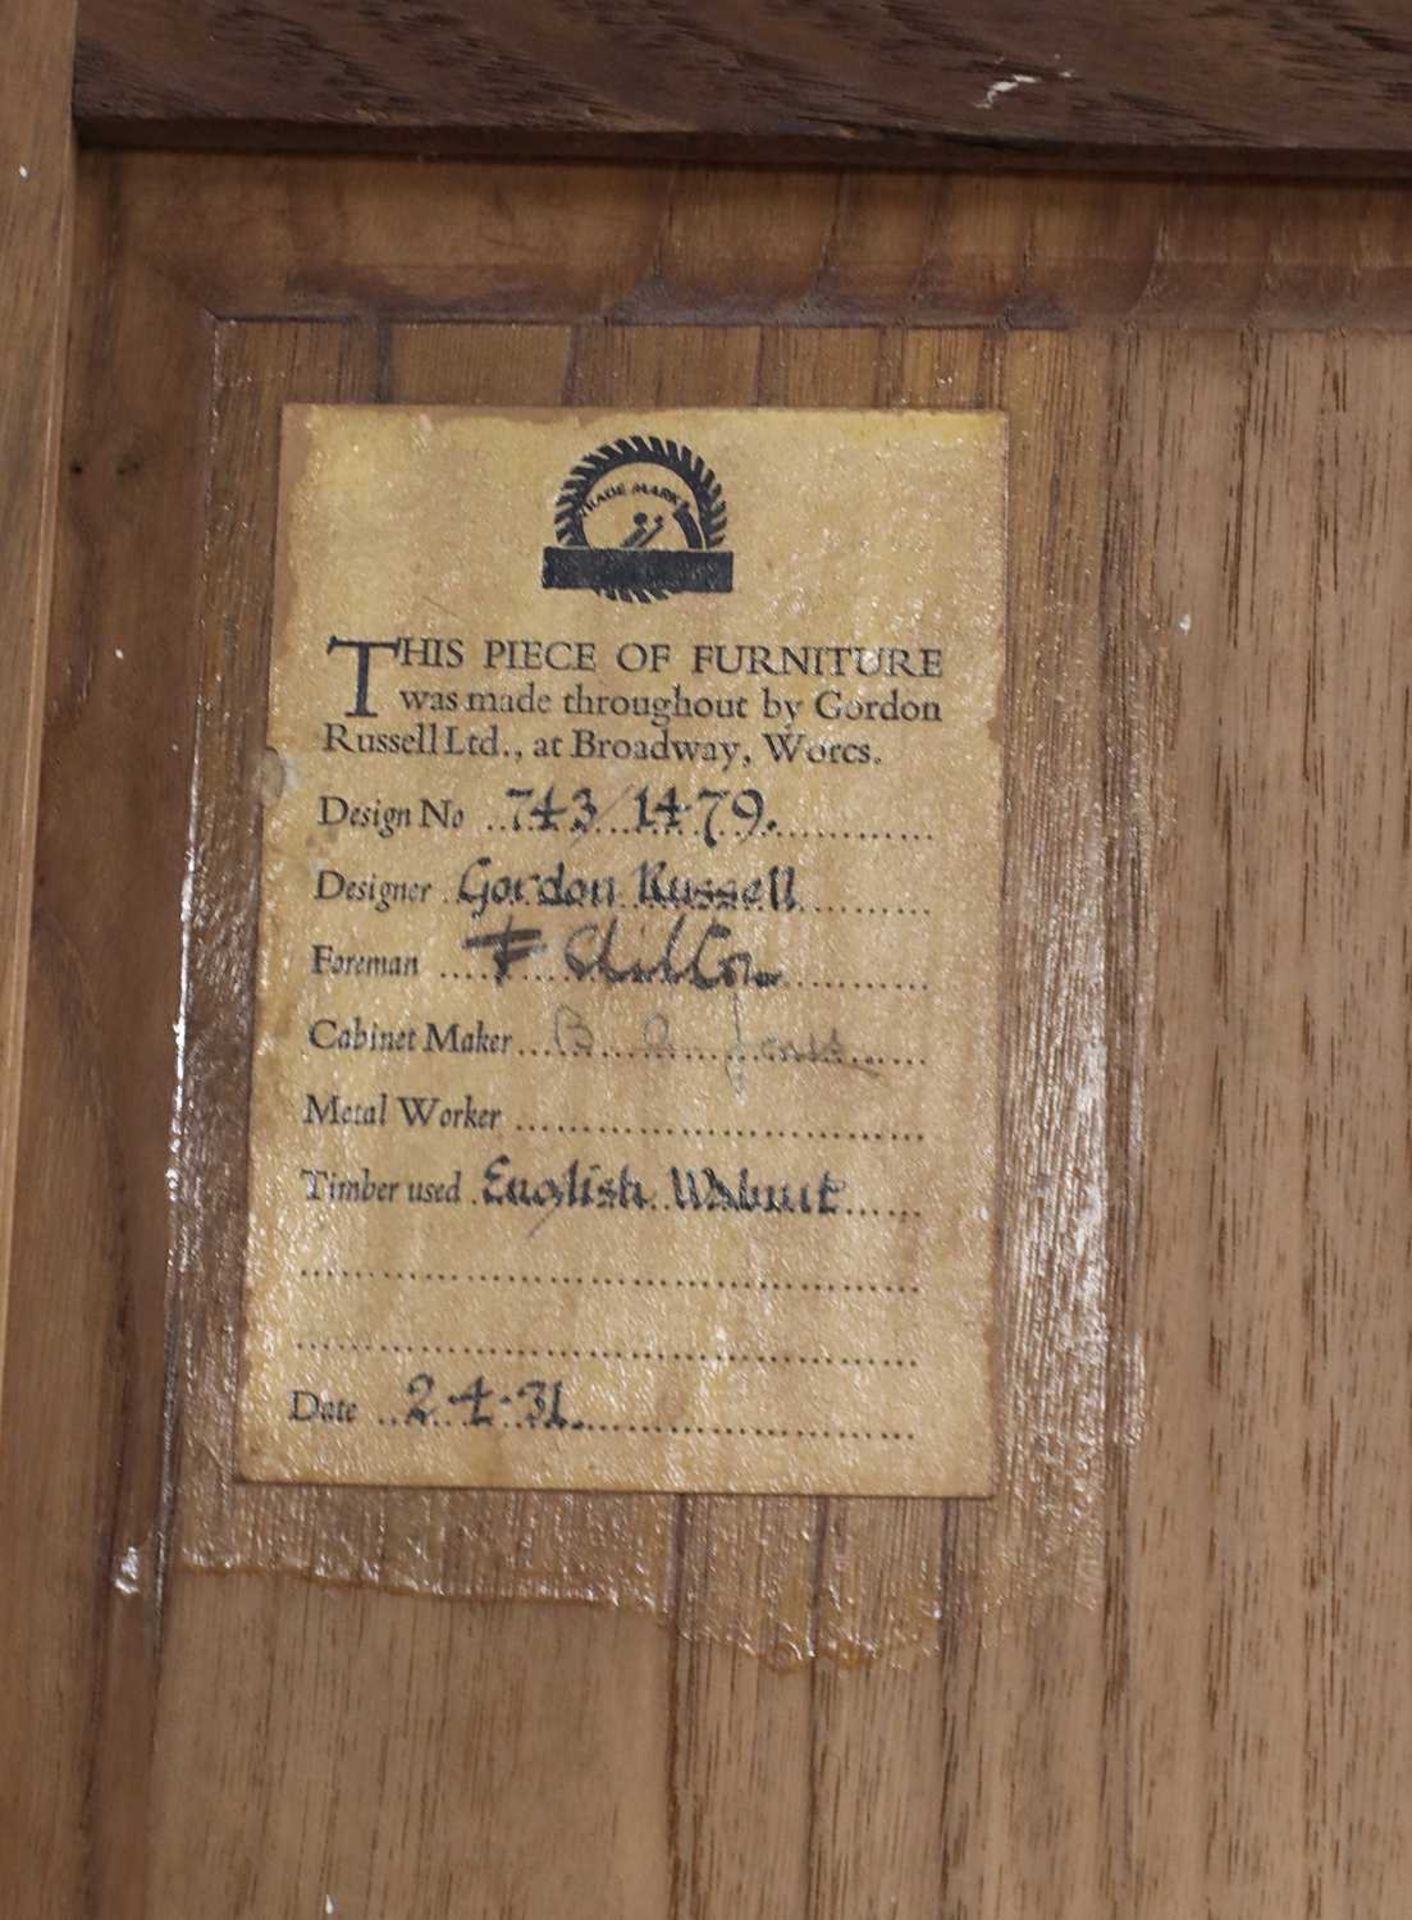 TRADE MARK
THIS PIECE OF FURNITURE
was made throughout by Gordon
Russell Ltd., at Broadway, Worcs.
Design No 743/1479.
Designer Gordon Russell
Foreman F Shilton
Cabinet Maker B Jones
Metal Worker
Timber used English Walnut
Date 2·4·31.